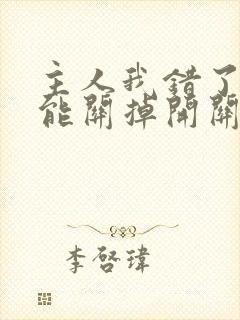 主人我错了
能關掉開關
李啓瑋